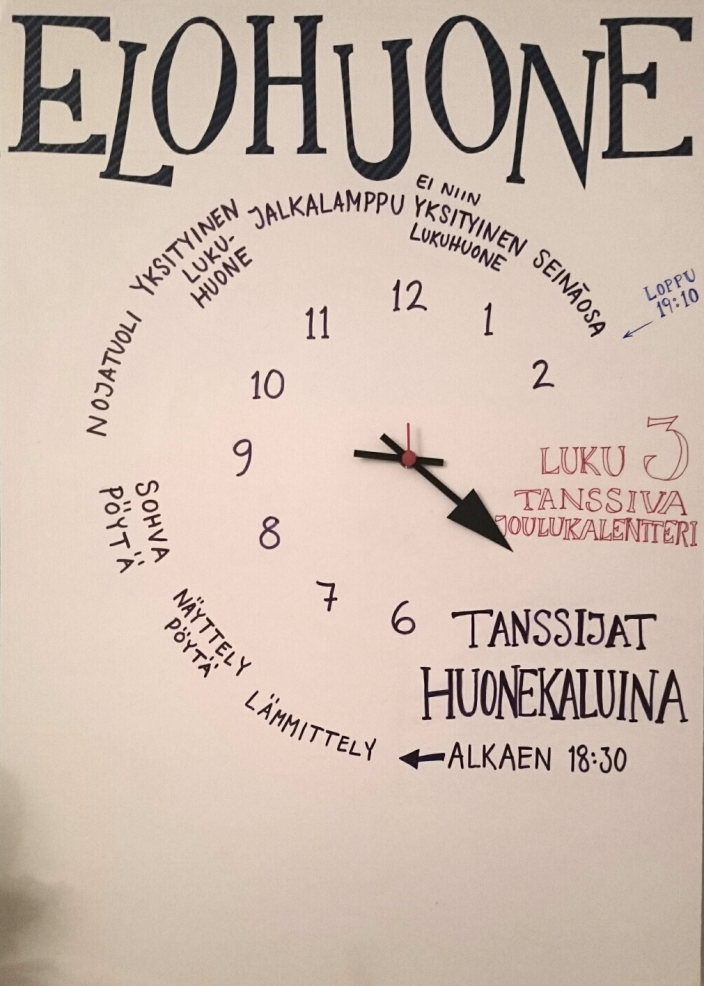 ELOHUONE
EI NIIN
YKSITYINEN
LUKUHUONE
JALKALAMPPU
YKSITYINEN
LUKU-
HUONE
SEINÄOSA
LOPPU
19:10
NOJATUOLI
12
11
1
10
2
9
8
7
6
LUKU 3
TANSSIVA
JOULUKALENTTERI
SOHVA
PÖYTÄ
NÄYTTELY
PÖYTÄ
TANSSIJAT
HUONEKALUINA
LÄMMITTELY
ALKAEN 18:30